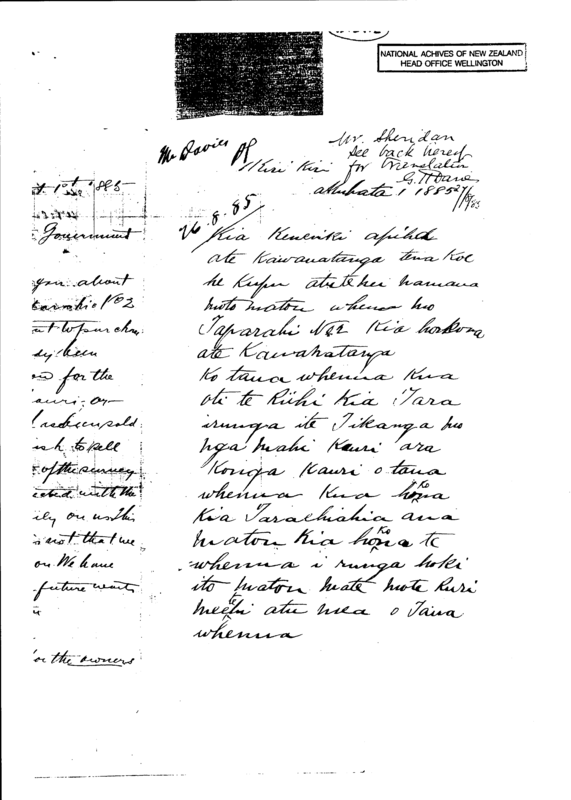 NATIONAL ACHIVES OF NEW ZEALAND
HEAD OFFICE WELLINGTON
Mr Davies
Mr. Sheridan
see back hereof
for translation
Kiri Kiri
Akuhata 1 1885
26.8.85
Kia Keneriki apiha
ate Kawanatanga tena Koe
he Kupu atu tenei
moto matou whenua ko
Taparahi No2 Kia hokona
ate Kawanatanga
Ko taua whenua Kua
oti te Riihi Kia Tara
irunga ite Tikanga mo
nga mahi Kauri ara
Konga Kauri o taua
whenua Kua hoko
Kia Tara e hiahia ana
matou Kia hoko te
whenua i runga hoki
ito matou mate mote Ruri
me etehi atu mea o Taua
whenua
1885
Government
you about
No 2
sly been
for the
sold
ish to sell
of the survey
ected with the
ily on us This
is not that we
on We have
future wants
or the owners